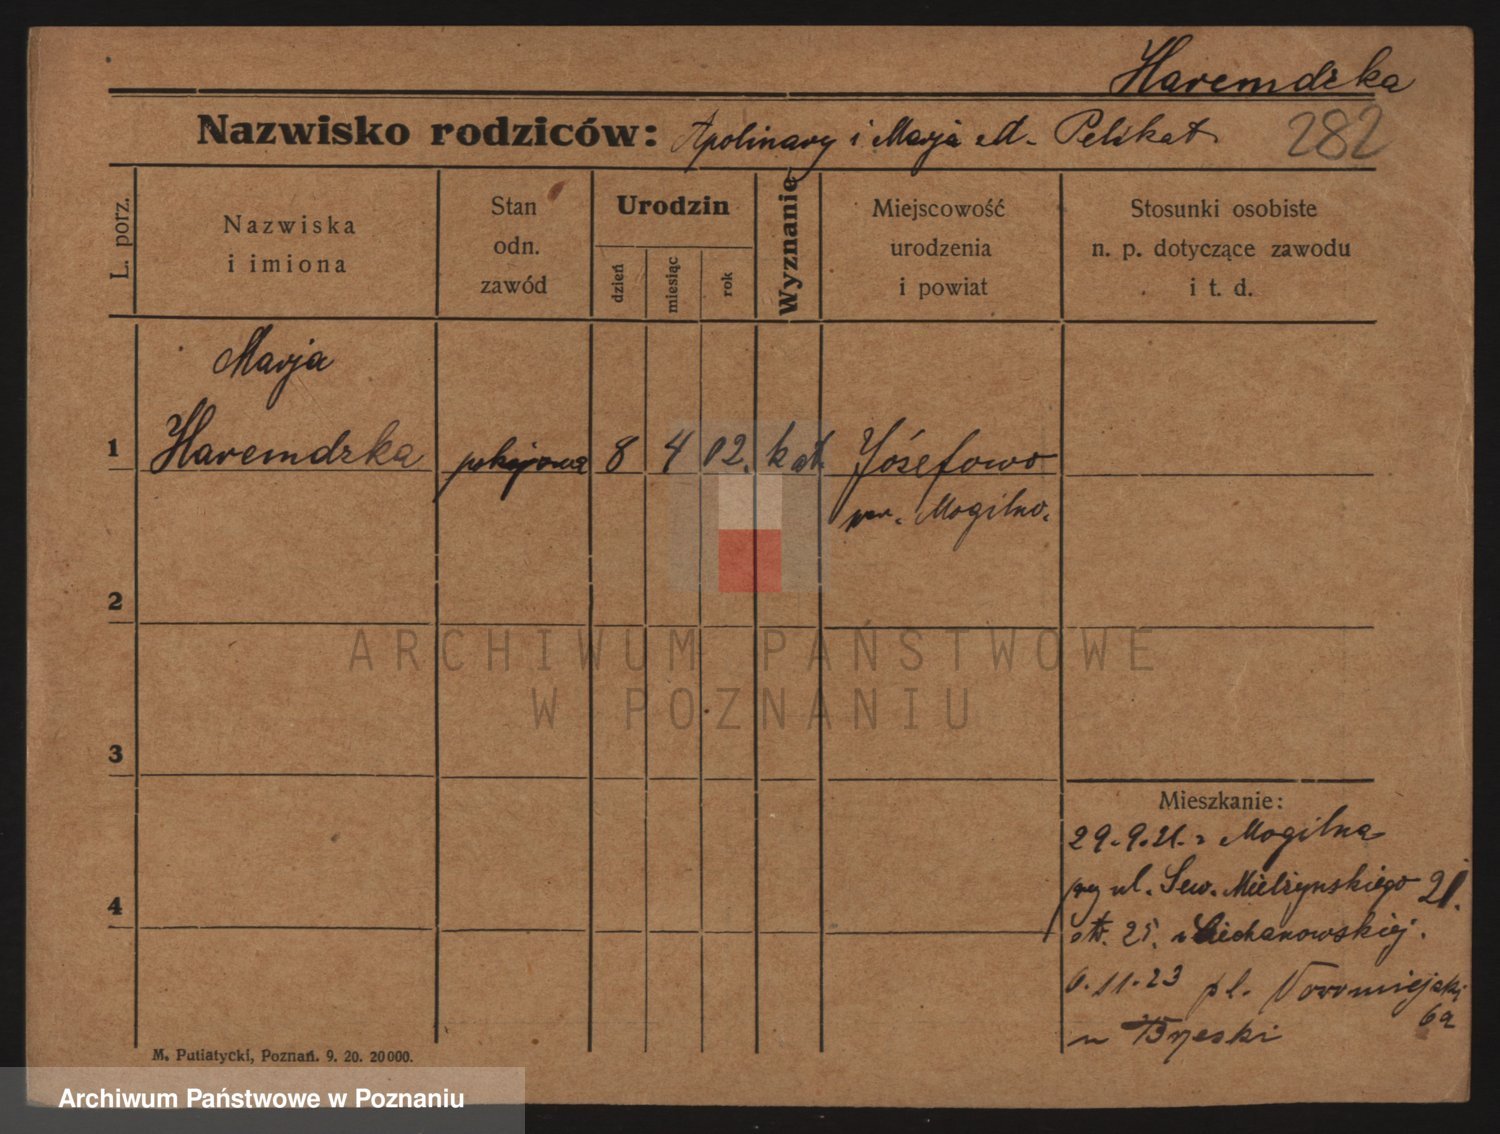 Haremdzka
Nazwisko rodziców: Apolinary i Marja M. Pelikat
282
L. porz.
Nazwiska
i imiona
Stan
odn.
zawód
Urodzin
dzień
miesiąc
rok
Wyznanie
Miejscowość
urodzenia
i powiat
Stosunki osobiste
n. p. dotyczące zawodu
i t. d.
Marja
1 Haremdzka pokojowa 8 4 02. kat. Józefowo
pow. Mogilno.
2
ARCHIWUM PAŃSTWOWE
W POZNANIU
3
Mieszkanie:
29.9.21. z Mogilna
przy ul. Sew. Mielżynskiego 21.
25. u Ciechanowskiej.
4
6.11.23 pl. Nowomiejski
6a
u Brzeski
M. Putiatycki, Poznań. 9. 20. 20000.
Archiwum Państwowe w Poznaniu